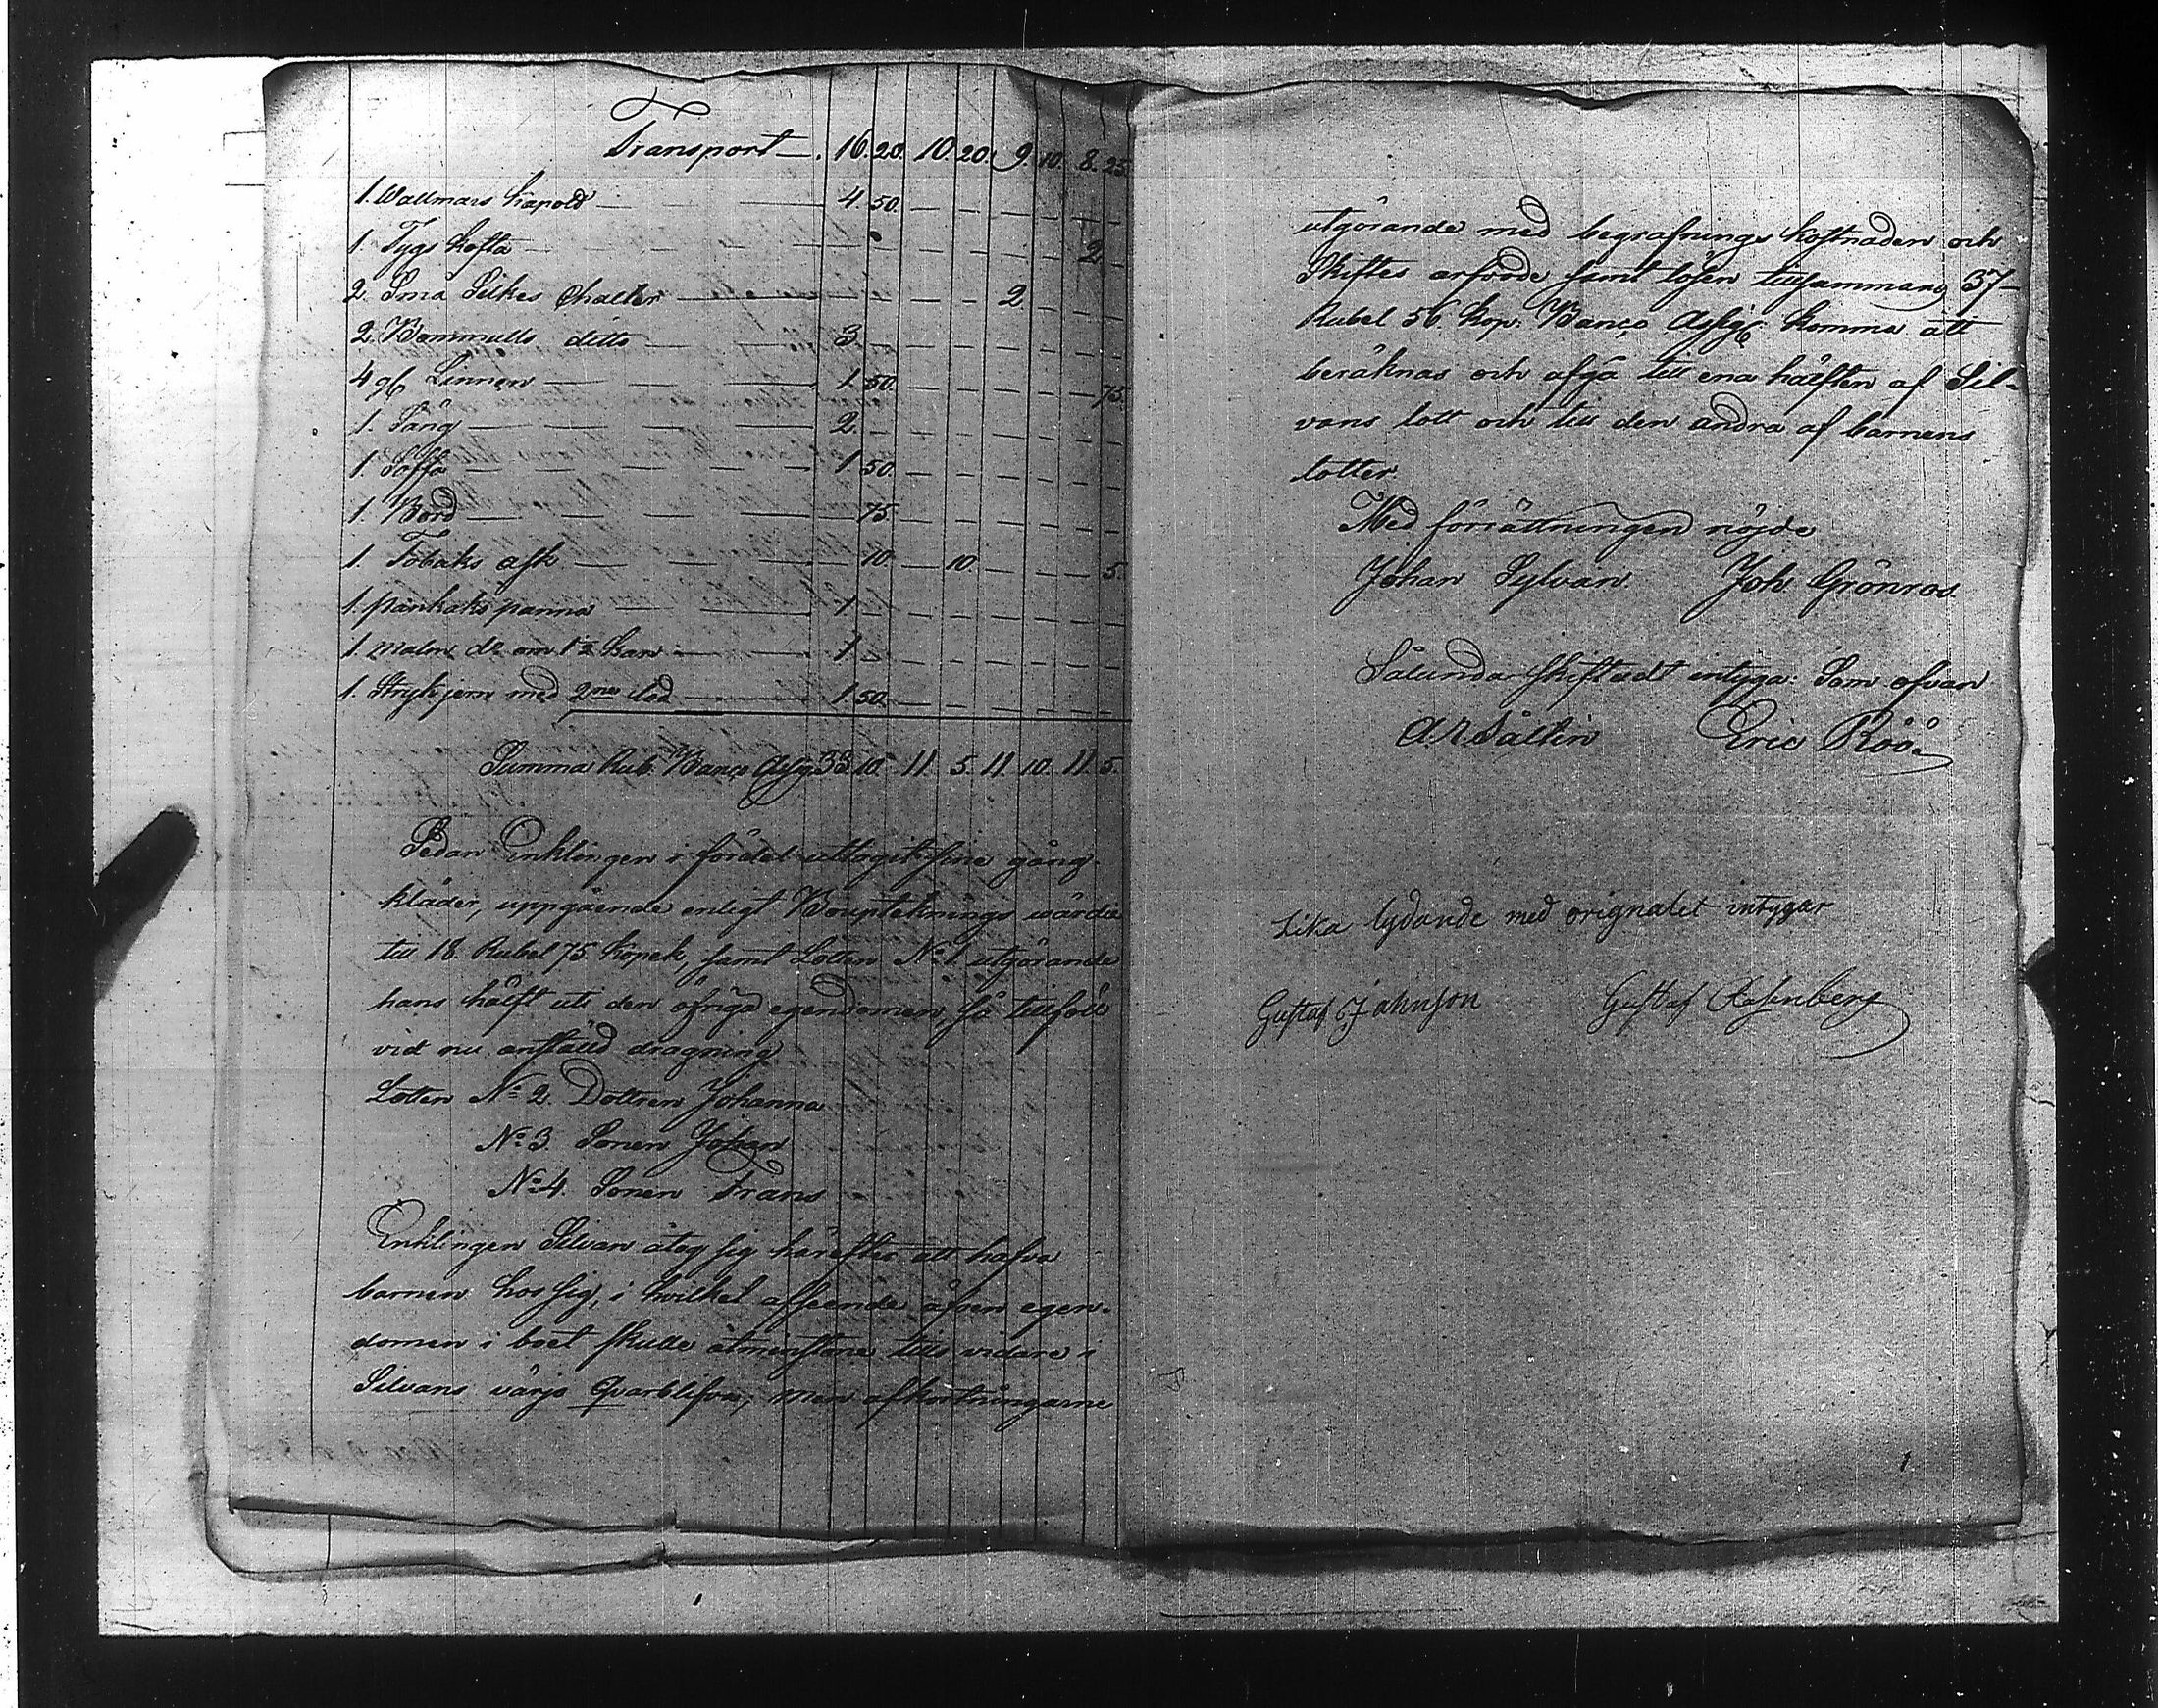 Transport — 16. 20. 10. 20. 9. 10. 8. 25.
1. Wallmars kapott — 4 50. — — — — — —
1. Tygs kofta — — — — — — 2 —
2. Små Silkes Chalter — — — — 2. — — —
2. Bommulls ditto — 3 — — — — — —
4 gl Linnen — 1. 50. — — — — — 75.
1. Säng — 2. — — — — — —
1 Soffa — 1 50. — — — — — —
1. Bord — 75. — — — — — —
1. Tobaks ask — 10. — 10. — — — 5.
1. pankaks panna — 1 — — — — — —
1 malm do om 1½ kan — 1 — — — — — —
1. Strykjern med 2ne lod — 1. 50. — — — — — —
Summa Rub. Banco Assig 33 10. 11. 5. 11. 10. 11. 5.
Sedan Enklingen i fördel uttagit sine gång-
kläder, uppgående enligt Bouptecknings värde
till 18. Rubel 75. Kopek, samt Lotten No 1. utgörande
hans hälft uti den öfriga egendomen, så tillföll
vid nu anstäld dragning
Lotten No 2. Dottren Johanna
No 3. Sonen Johan
No 4. Sonen Frans
Enklingen Silvan åtog sig härefter att hafva
barnen hos sig, i hvilket afseende äfven egen-
domen i boet skulle åtminstone tills vidare i
Silvans värjo qvarblifva, men afkortningarne
utgörande med begrafnings kostnaden och
Skiftes arfvode samt lösen tillsammans 37-
Rubel 56. Kop. Banco Assig komma att
beräknas och afgå till ena hälften af Sil-
vans lott och till den andra af barnens
lotter.
Med förrättningen nöjde
Johan Sylvan Joh Grönros.
Sålunda skiftadt intyga: Som ofvan
Eric Röö.
Lika lydande med orignalet intygar
Gustaf Johnson Gustaf Rosenberg